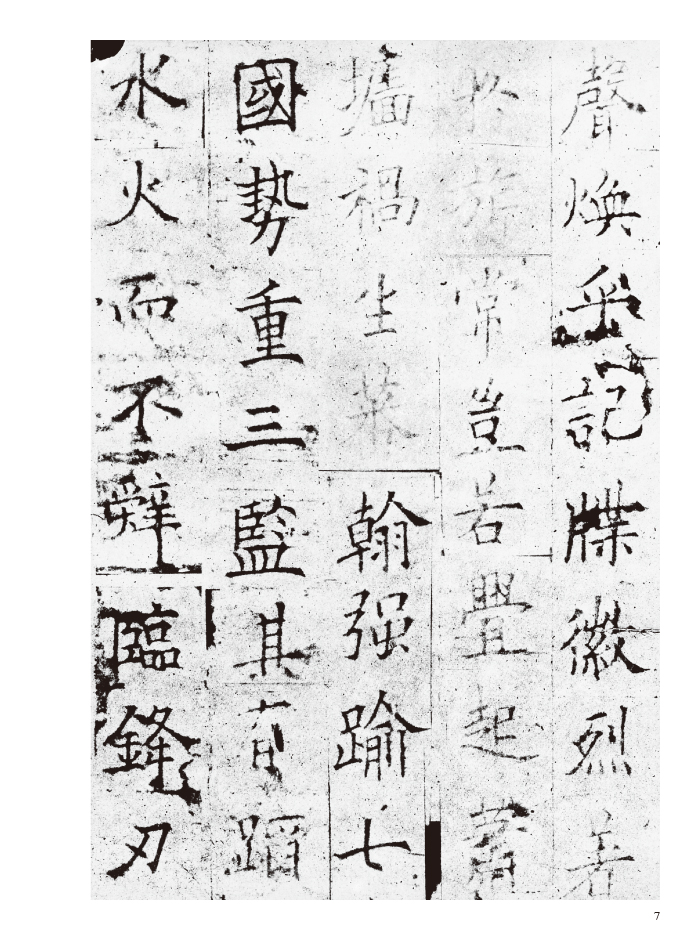 聲煥乎記牒徽烈著
於旂常豈若舋起蕭
墻禍生蕃翰强踰七
國勢重三監其有蹈
水火而不辭臨鋒刃
7